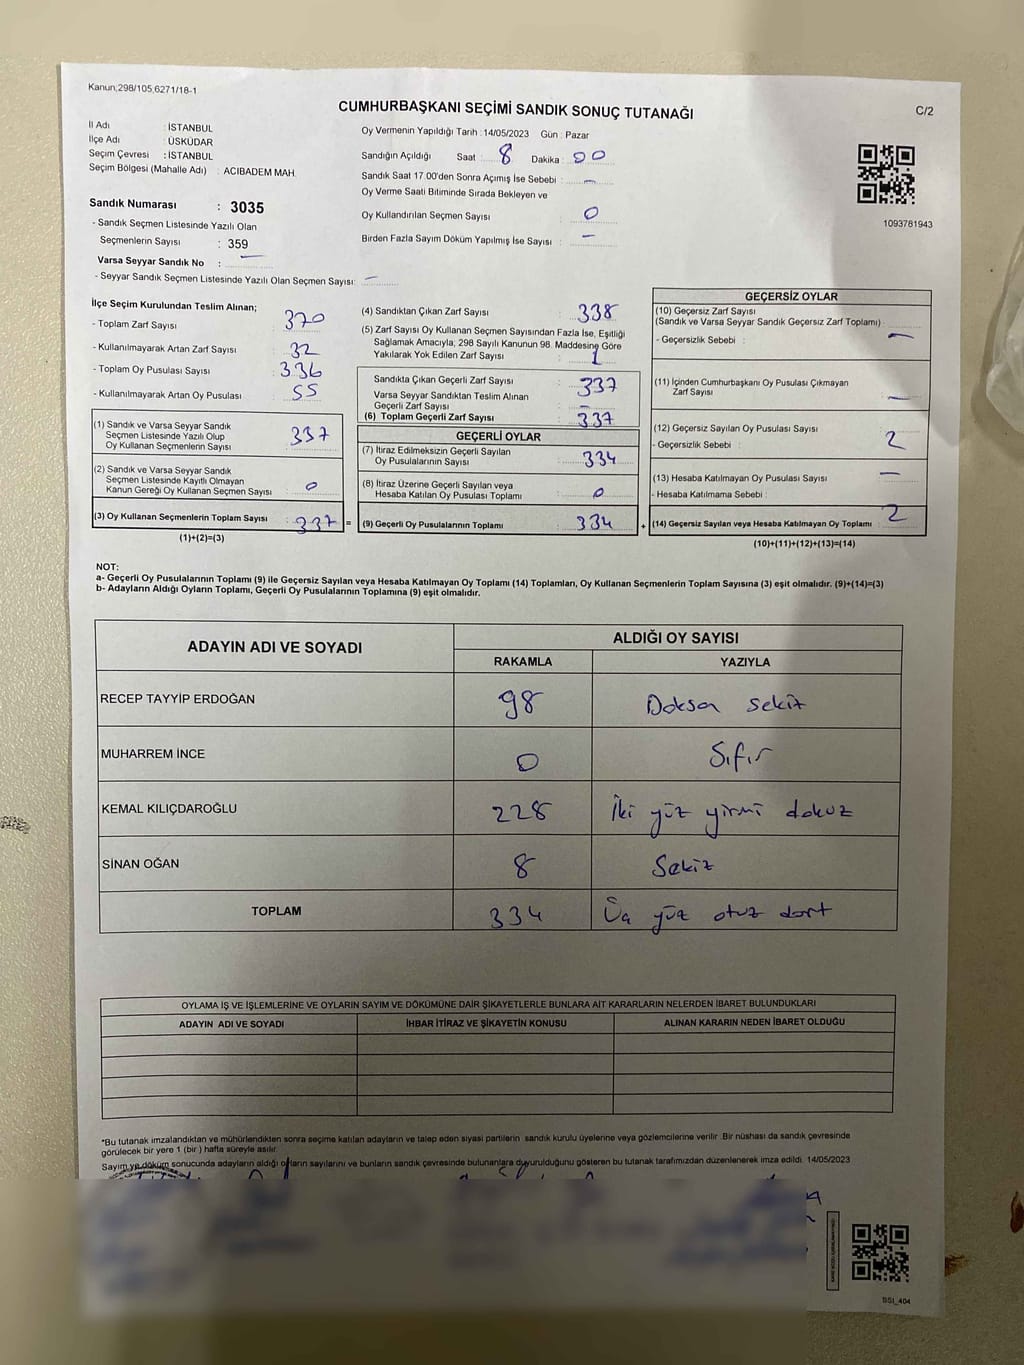 Kanun,298/105,6271/18-1
CUMHURBAŞKANI SEÇİMİ SANDIK SONUÇ TUTANAĞI
C/2
İl Adı : İSTANBUL
İlçe Adı : ÜSKÜDAR
Seçim Çevresi : İSTANBUL
Seçim Bölgesi (Mahalle Adı) : ACIBADEM MAH.
Sandık Numarası : 3035
- Sandık Seçmen Listesinde Yazılı Olan
Seçmenlerin Sayısı : 359
Varsa Seyyar Sandık No : —
- Seyyar Sandık Seçmen Listesinde Yazılı Olan Seçmen Sayısı: —
Oy Vermenin Yapıldığı Tarih :14/05/2023 Gün : Pazar
Sandığın Açıldığı Saat : 8 Dakika : 00
Sandık Saat 17.00'den Sonra Açımış İse Sebebi : —
Oy Verme Saati Bitiminde Sırada Bekleyen ve
Oy Kullandırılan Seçmen Sayısı : 0
Birden Fazla Sayım Döküm Yapılmış İse Sayısı : —
1093781943
İlçe Seçim Kurulundan Teslim Alınan;
- Toplam Zarf Sayısı : 370
- Kullanılmayarak Artan Zarf Sayısı : 32
- Toplam Oy Pusulası Sayısı : 336
- Kullanılmayarak Artan Oy Pusulası : 55
(1) Sandık ve Varsa Seyyar Sandık
Seçmen Listesinde Yazılı Olup
Oy Kullanan Seçmenlerin Sayısı : 337
(2) Sandık ve Varsa Seyyar Sandık
Seçmen Listesinde Kayıtlı Olmayan
Kanun Gereği Oy Kullanan Seçmen Sayısı : 0
(3) Oy Kullanan Seçmenlerin Toplam Sayısı : 337 =
(1)+(2)=(3)
(4) Sandıktan Çıkan Zarf Sayısı : 338
(5) Zarf Sayısı Oy Kullanan Seçmen Sayısından Fazla İse, Eşitliği
Sağlamak Amacıyla; 298 Sayılı Kanunun 98. Maddesine Göre
Yakılarak Yok Edilen Zarf Sayısı : 1
Sandıkta Çıkan Geçerli Zarf Sayısı : 337
Varsa Seyyar Sandıktan Teslim Alınan
Geçerli Zarf Sayısı : —
(6) Toplam Geçerli Zarf Sayısı : 337
GEÇERLİ OYLAR
(7) İtiraz Edilmeksizin Geçerli Sayılan
Oy Pusulalarının Sayısı : 334
(8) İtiraz Üzerine Geçerli Sayılan veya
Hesaba Katılan Oy Pusulası Toplamı : 0
(9) Geçerli Oy Pusulalarının Toplamı : 334 +
GEÇERSİZ OYLAR
(10) Geçersiz Zarf Sayısı
(Sandık ve Varsa Seyyar Sandık Geçersiz Zarf Toplamı) :
- Geçersizlik Sebebi : —
(11) İçinden Cumhurbaşkanı Oy Pusulası Çıkmayan
Zarf Sayısı : —
(12) Geçersiz Sayılan Oy Pusulası Sayısı : 2
- Geçersizlik Sebebi :
(13) Hesaba Katılmayan Oy Pusulası Sayısı : —
- Hesaba Katılmama Sebebi :
(14) Geçersiz Sayılan veya Hesaba Katılmayan Oy Toplamı : 2
(10)+(11)+(12)+(13)=(14)
NOT:
a- Geçerli Oy Pusulalarının Toplamı (9) ile Geçersiz Sayılan veya Hesaba Katılmayan Oy Toplamı (14) Toplamları, Oy Kullanan Seçmenlerin Toplam Sayısına (3) eşit olmalıdır. (9)+(14)=(3)
b- Adayların Aldığı Oyların Toplamı, Geçerli Oy Pusulalarının Toplamına (9) eşit olmalıdır.
ADAYIN ADI VE SOYADI
ALDIĞI OY SAYISI
RAKAMLA YAZIYLA
RECEP TAYYİP ERDOĞAN 98 Doksan sekiz
MUHARREM İNCE 0 Sıfır
KEMAL KILIÇDAROĞLU 228 İki yüz yirmi dokuz
SİNAN OĞAN 8 Sekiz
TOPLAM 334 Üç yüz otuz dört
OYLAMA İŞ VE İŞLEMLERİNE VE OYLARIN SAYIM VE DÖKÜMÜNE DAİR ŞİKAYETLERLE BUNLARA AİT KARARLARIN NELERDEN İBARET BULUNDUKLARI
ADAYIN ADI VE SOYADI İHBAR İTİRAZ VE ŞİKAYETİN KONUSU ALINAN KARARIN NEDEN İBARET OLDUĞU
*Bu tutanak imzalandıktan ve mühürlendikten sonra seçime katılan adayların ve talep eden siyasi partilerin sandık kurulu üyelerine veya gözlemcilerine verilir .Bir nüshası da sandık çevresinde
görülecek bir yere 1 (bir ) hafta süreyle asılır.
Sayım ve döküm sonucunda adayların aldığı oyların sayılarını ve bunların sandık çevresinde bulunanlara duyurulduğunu gösteren bu tutanak tarafımızdan düzenlenerek imza edildi. 14/05/2023
SSI_404